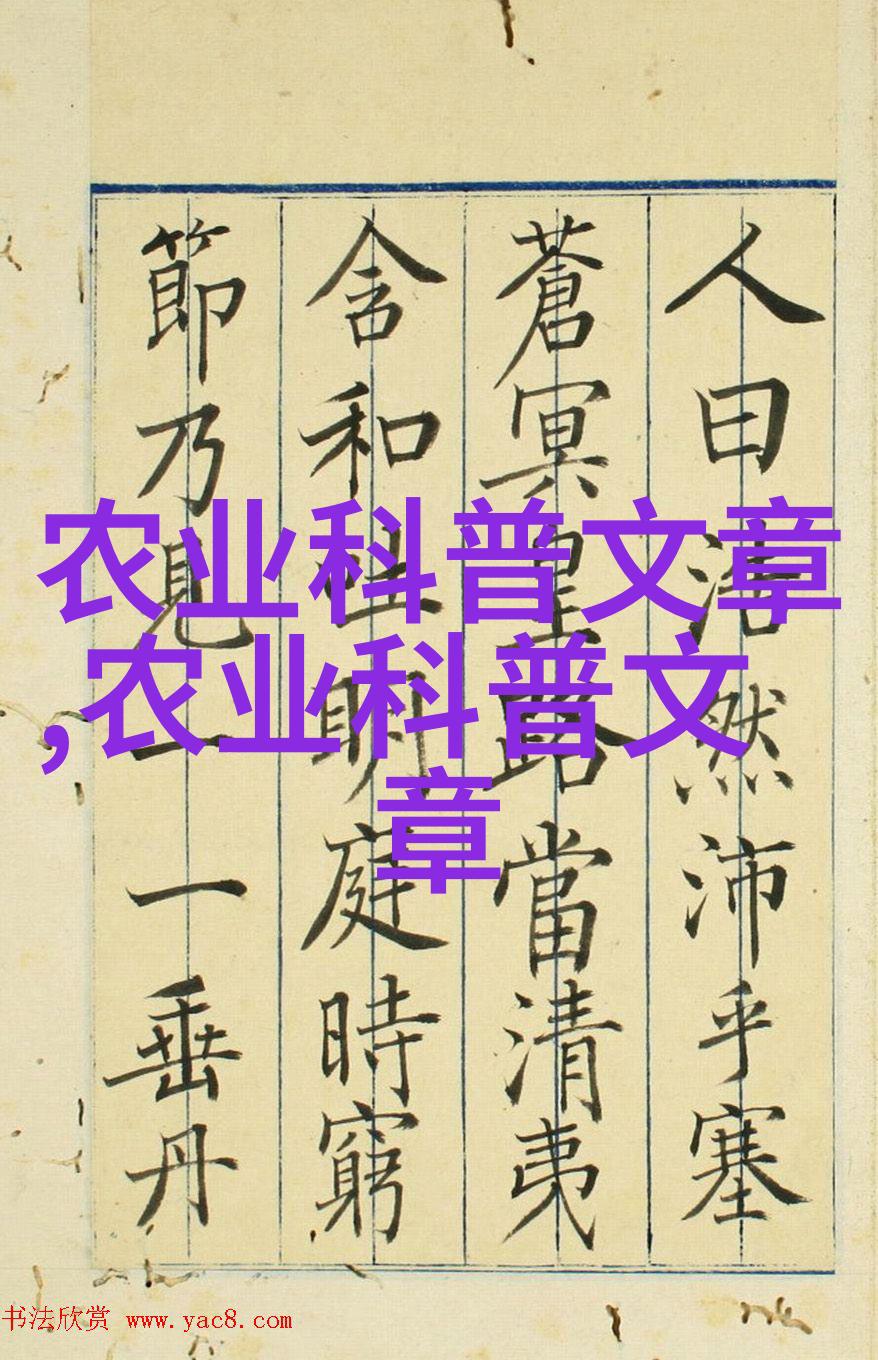 人曰浩然沛乎塞
蒼冥皇路當清夷
含和吐明庭時窮
節乃見一一垂丹
农业科普文章
,农业科普文
章
书法欣赏 www.yac8.com